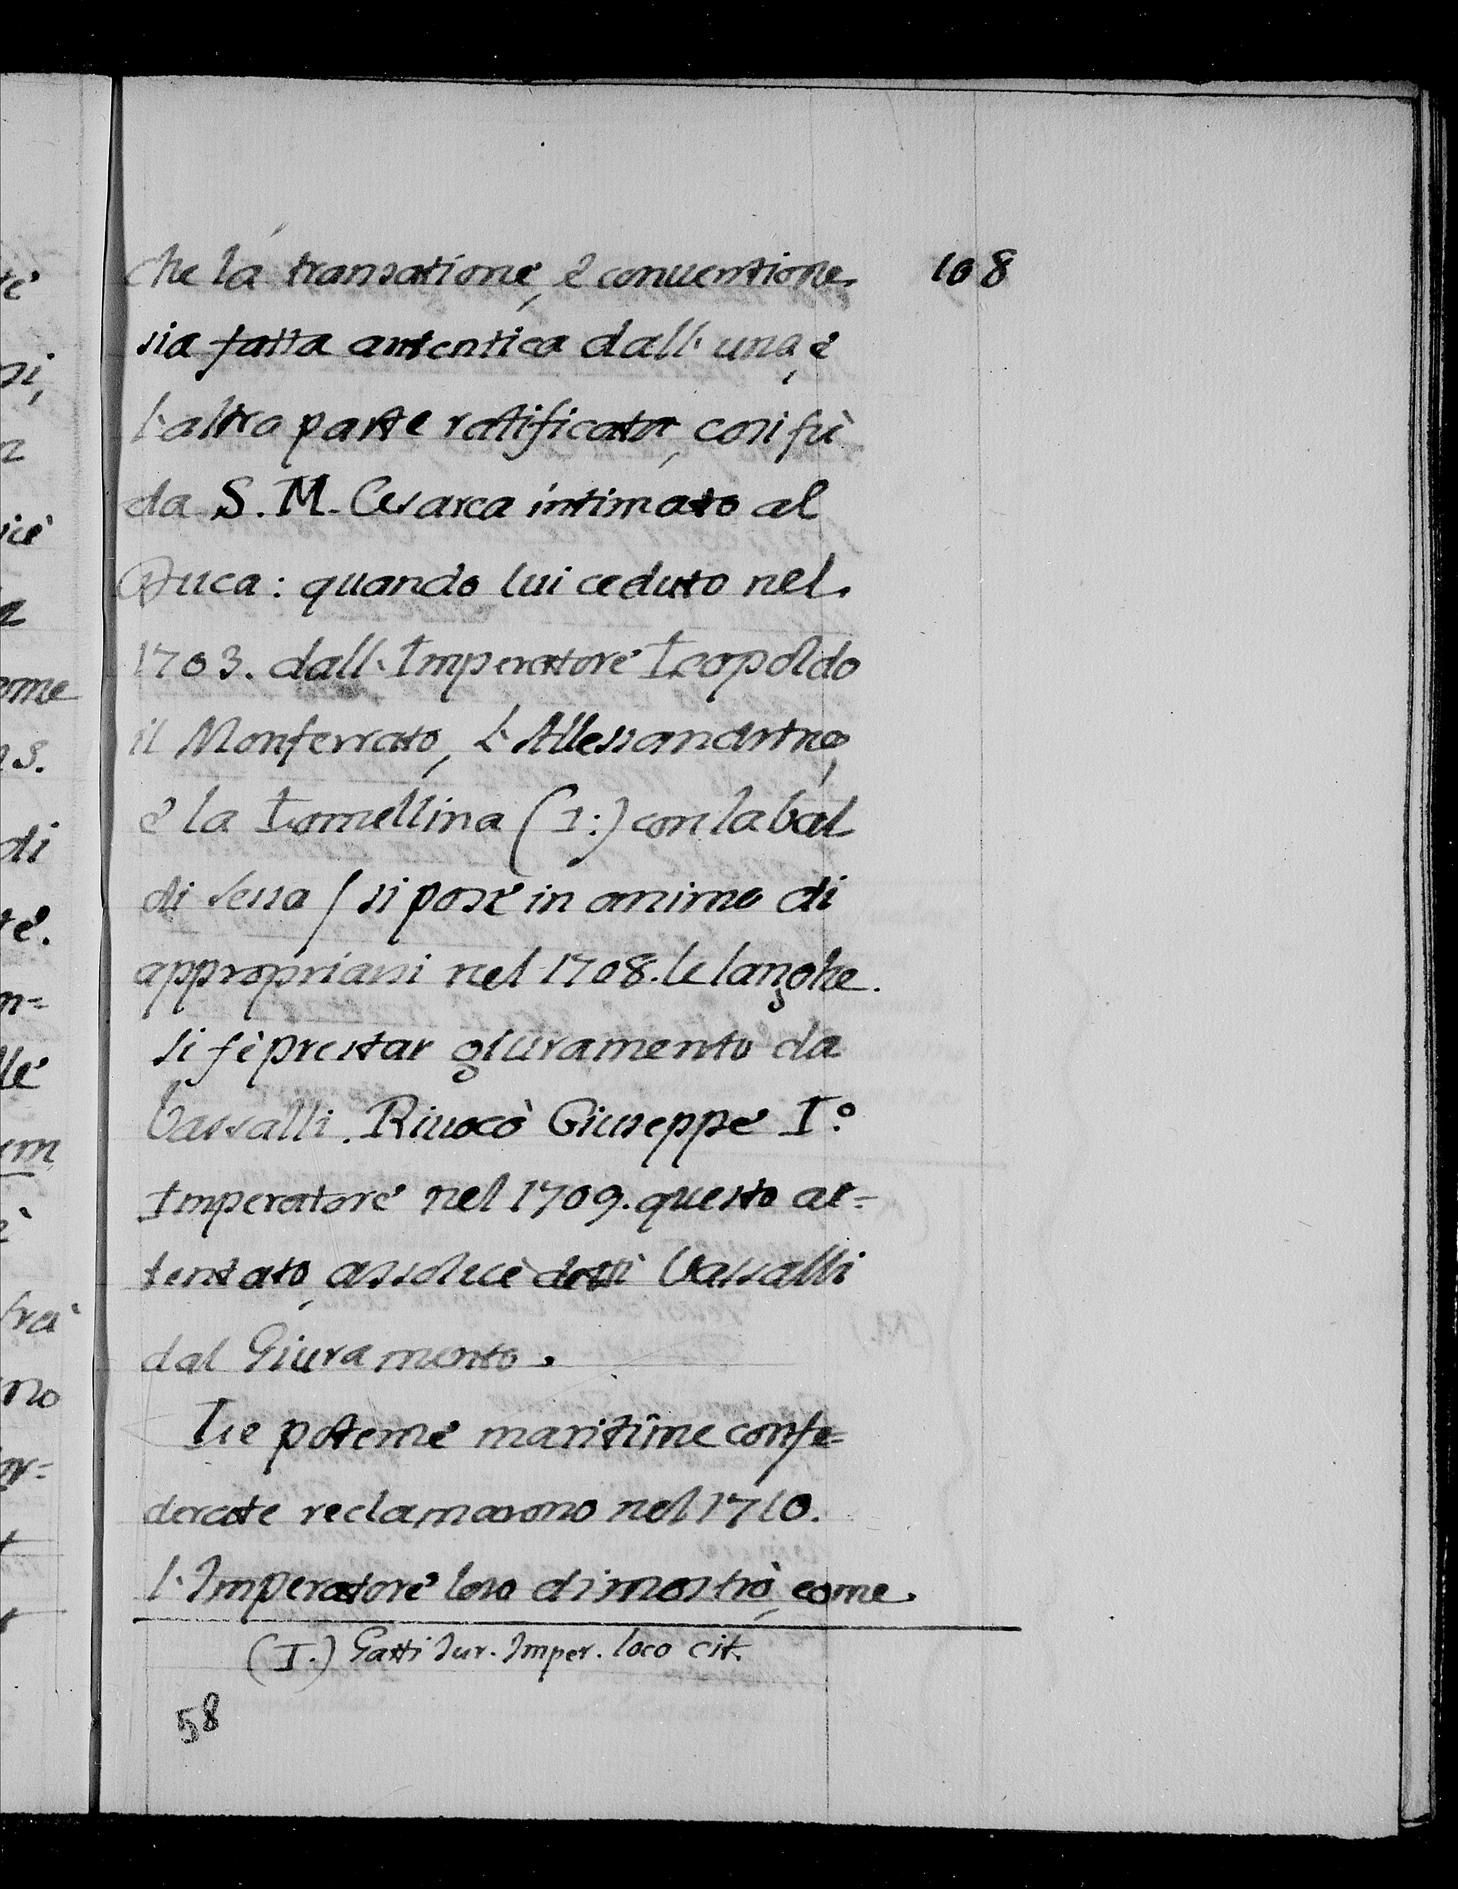 che la transatione, è conventione. 108
sia fatta autentica dall' una, è
l'altra parte ratificata, cosi fù
da S. M. Cesarea intimato al
Duca: quando lui ceduto nel.
1703. dall' Imperatore Leopoldo
il Monferrato, l'Allessandrino,
è la Lomellina (I:) con la val
di sessa / si pose in animo di
appropriarsi nel 1708. le langhe.
si fè prestar giuramento da
Vassalli. Rivocò Giuseppe I.º
Imperatore nel 1709. questo at=
tentato, assolvè detti Vassalli
dal Giuramento.
Le potenze maritime confe=
derate reclamarono nel 1710.
l'Imperatore loro dimostrò, come.
(I.) Gatti Jur. Imper. loco cit.
58